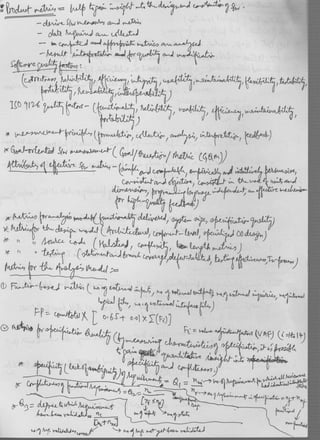 * Product metrics = help to gain insight into the design and construction of SW.
- derive SW measures and metrics
- data required are collected
- computed and appropriate metrics are analyzed
- Result interpretation for quality and modification
Software quality factors:-
(correctness, reliability, efficiency, integrity, usability, maintainability, flexibility, testability,
portability, reusability, interoperability)
ISO 9126 quality factors - (functionality, reliability, usability, efficiency, maintainability,
portability)
* measurement principles (formulation, collection, analysis, interpretation, feedback)
* Goal-oriented SW measurement (Goal/Question/Metric (GQM))
Attributes of effective SW metrics - (simple and computable, empirically and intuitively persuasive,
consistent and objective, consistent in the use of units and
dimensions, programming language independent, an effective mechanism
for high-quality feedback)
* Metrics for analysis model (functionality delivered, system size, specification quality)
* Metrics for the design model (Architectural, component-level, specialized OO design)
* " " source code (Halstead, complexity, length metrics)
* " " testing (statement and branch coverage, defect-related, testing effectiveness, in-process)
Metrics for the Analysis Model :=
① Function-based metrics (no of external inputs, no of external outputs, no of external inquiries, no of internal
logical files, no of external interface files)
FP = count total X [0.65 + 0.01 X Σ(Fi)]
Fi = value adjustment factors (VAF) (i = 1 to 14)
② metrics for specification quality (by measuring characteristics of specification, it is possible
to gain quantitative insight into
specificity and completeness)
* specificity (lack of ambiguity) of requirements = Q1 =
* completeness of functional requirements = Q2 =
* Q3 = degree to which requirements
have been validated =
no of req validated as correct
no of req not yet been validated